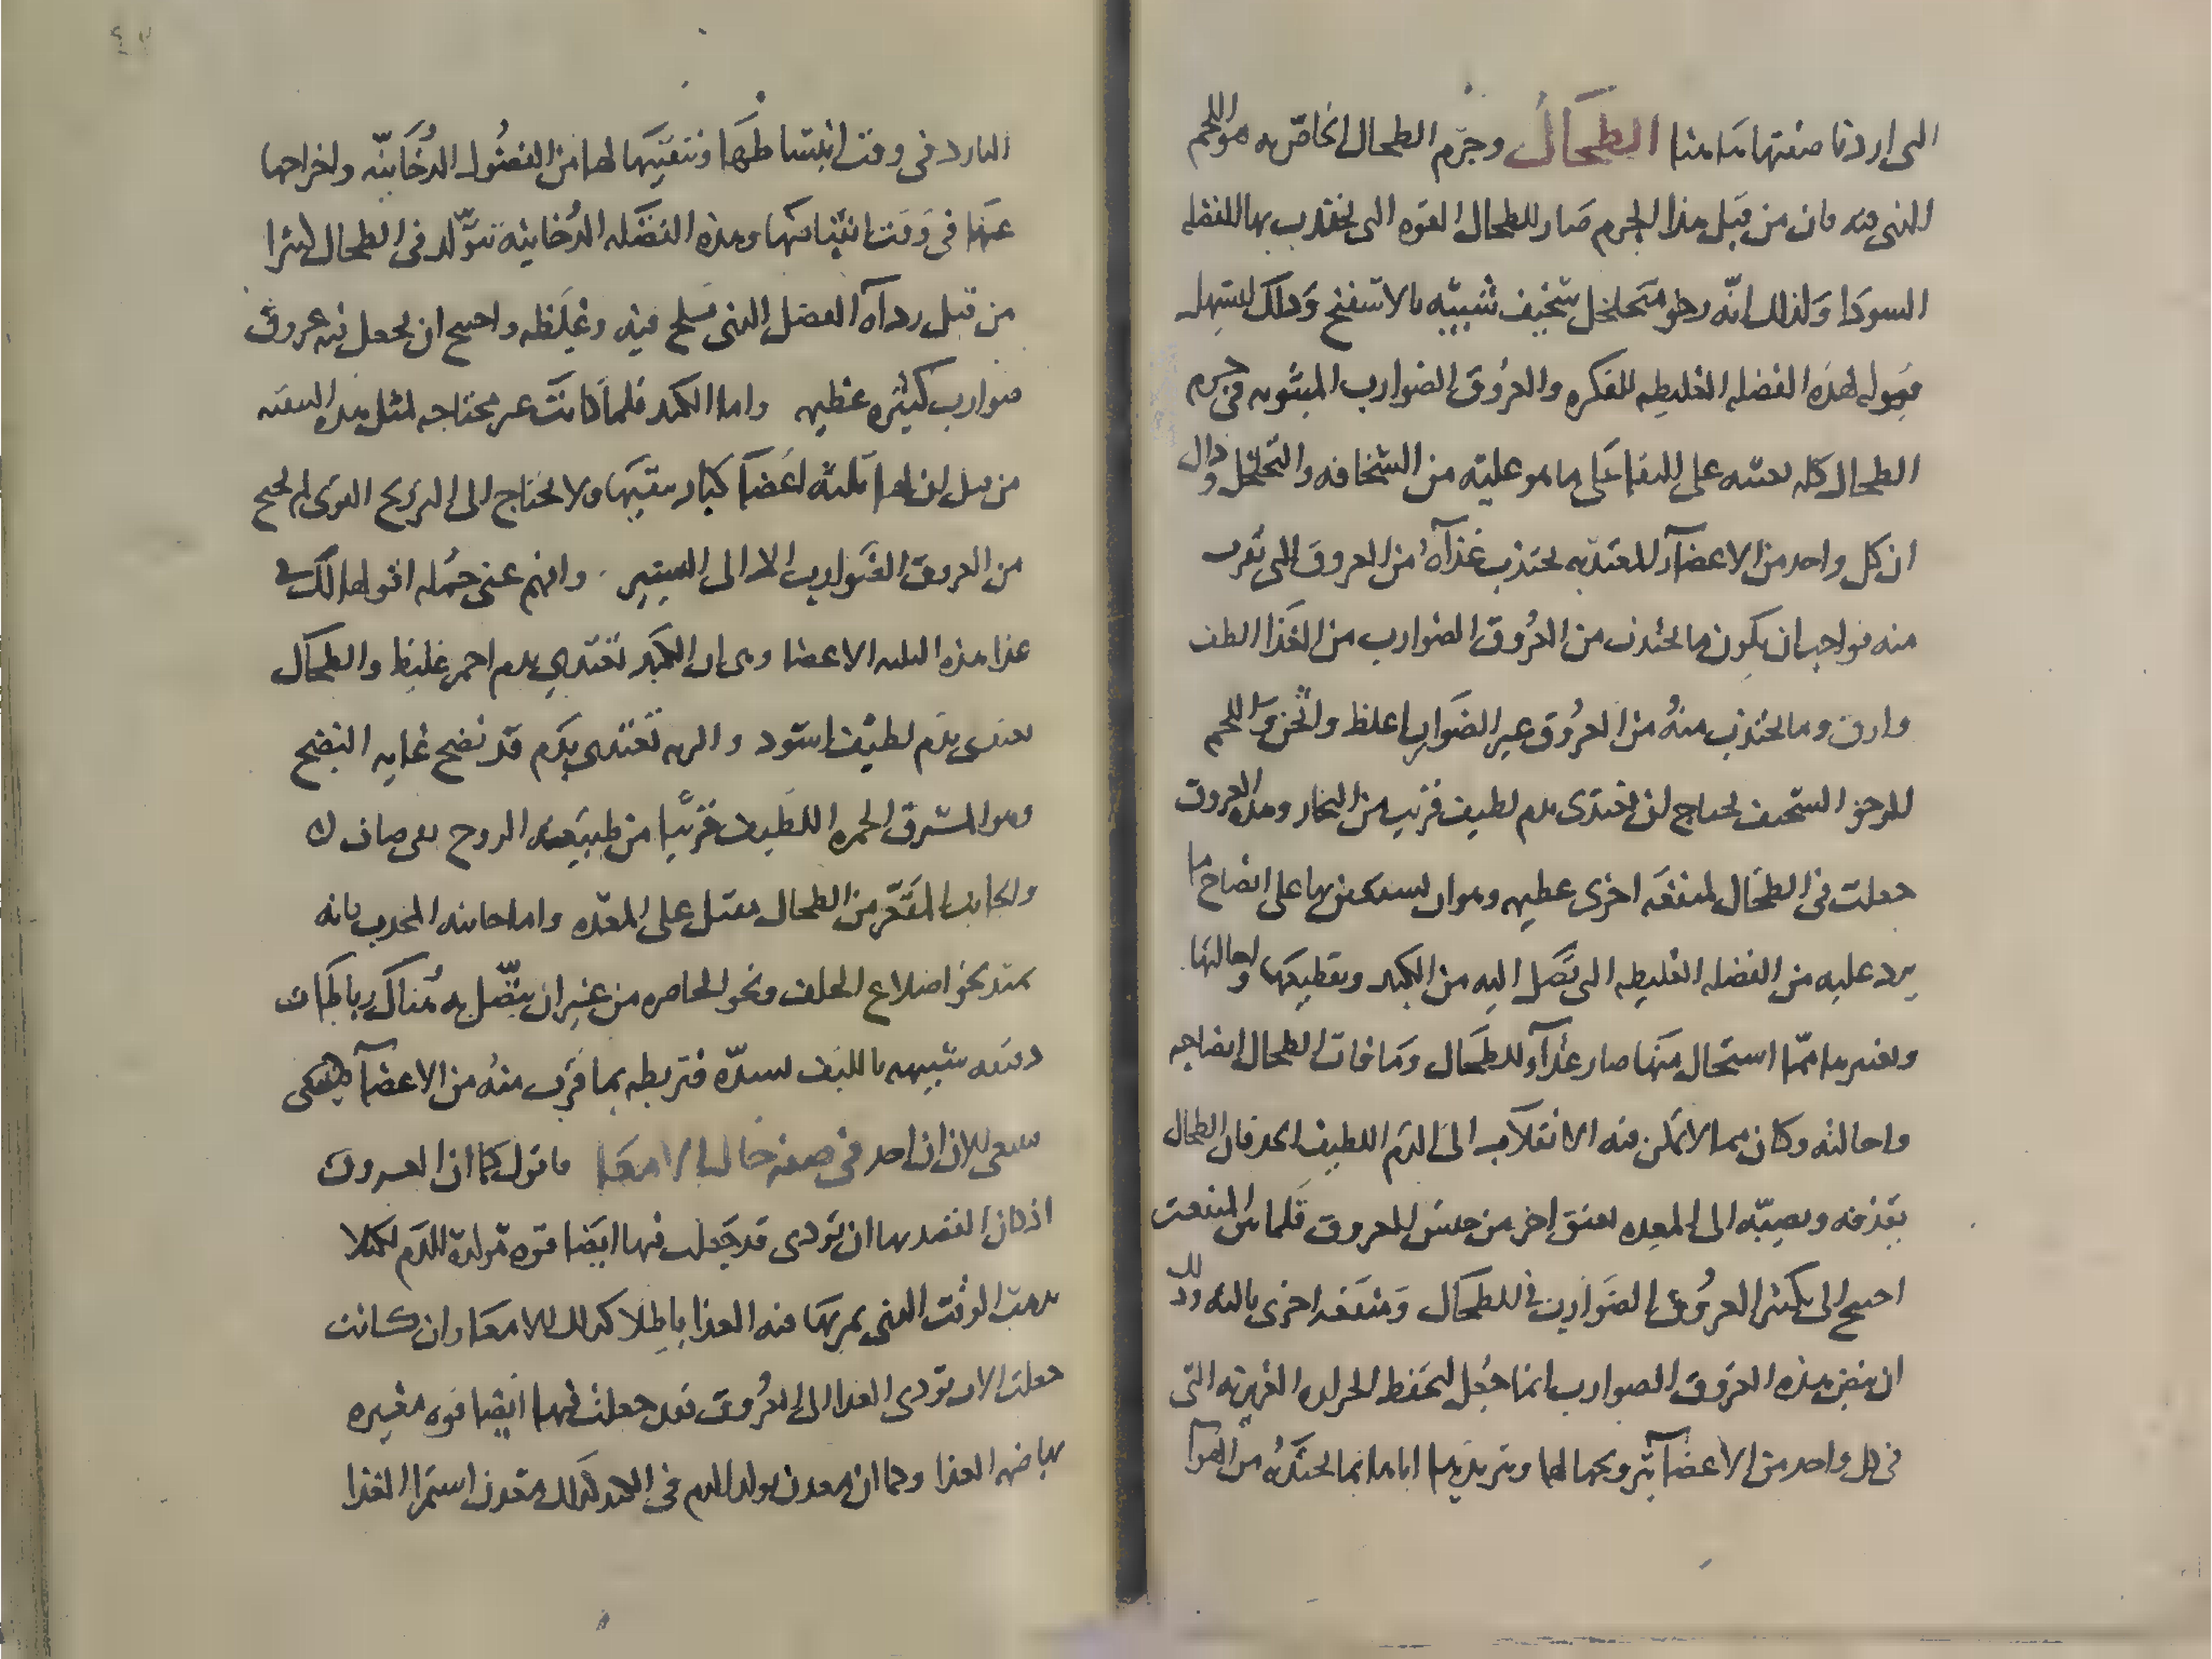 التى اردنا صفتها هاهنا الطحال وجرم الطحال الخاص به هو اللحم
الذى فيه فان من قبل هذا الجرم صار للطحال القوه التى يجتذب بها الفضله
السودا ولذلك انه رخو متخلخل سخيف شبيه بالاسفنج وذلك ليسهل
قبوله لهذه الفضله الغليظه العكره والعروق الضوارب المبثوثه فى جرم
الطحال كله تعينه على البقا على ما هو عليه من السخافه والتخلخل وذاك
ان كل واحد من الاعضآ المغتذيه يجتذب غذآه من العروق التى تقرب
منه فواجب ان يكون ما يجتذب من العروق الضوارب من الغذا الطف
وارق وما يجتذب منه من العروق غير الضوارب اغلظ واثخن واللحم
الرخو السخيف يحتاج ان يغتذى بدم لطيف قريب من البخار وهذه العروق
جعلت فى الطحال لمنفعه اخرى عظيمه وهو ان يستعين بها على انضاج ما
يرد عليه من الفضله الغليظه التى تصل اليه من الكبد وتقطيعها واحالتها
وتغييرها فما استحال منها صار غذآ للطحال وما فات الطحال انضاجه
واحالته وكان مما لا يمكن فيه الانقلاب الى الدم اللطيف الحد فان الطحال
يقذفه ويصبه الى المعده بعنق اخر من جنس العروق فلما من المنفعت
احتيج الى تكثر العروق الضوارب فى الطحال ومنفعه اخرى ثالثه وذلك
ان نبض هذه العروق الضوارب انما جعل لتحفظ الحراره الغريزيه التى
فى كل واحد من الاعضآ بترويحها لها وتبريدها اياها بما يجتذبه من الهوآ
البارد فى وقت انبساطها وتنقيتها لها من الفضول الدخانيه واخراجها
عنها فى وقت انقباضها وهذه الفضله الدخانيه تتولد فى الطحال كثيرا
من قبل ردآه الفضل الذى فيه وغلظه واحتيج ان يجعل فيه عروق
ضوارب كثيره عظيمه واما الكبد فلما كانت غير محتاجه لمثل هذه التنقيه
من قبل ان لها ثلثه اعضآ كبار تنقيها ولا تحتاج الى الترويح القوى لم تحتج
من العروق الضوارب الا الى اليسير وافهم عنى جمله اقولها لك فى
غذا هذه الثلثه الاعضا وهى ان الكبد تغتدى بدم احمر غليظ والطحال
يغتدى بدم لطيف اسود والريه تغتدى بدم قد نضج غايه النضج
وهو المشرق الحمره اللطيف قريبا من طبيعه الروح بقى صاف لك
والجانب المقعر من الطحال مقبل على المعده واما جانبه المحدب فانه
يمتد نحو اضلاع الخلف ونحو الخاصره من غير ان يتصل به هناك رباطات
دقيقه شبيهه بالليف تشده فتربطه بما قرب منه من الاعضآ
ينبغى الان ان اخذ فى صفه حال الامعا فاقول كما ان العروق
اذ كان القصد بها ان تودى قد جعلت فيها ايضا قوه مولده للدم لكيلا
يذهب الوقت الذى يمر بها فيه الغذا باطلا كذلك الامعا وان كانت
جعلت لان تودى الغذا الى العروق فقد جعلت فيها ايضا قوه مغيره
بها تهضم الغذا وكما ان معدن تولد الدم فى الكبد كذلك معدن استمرا الغذا